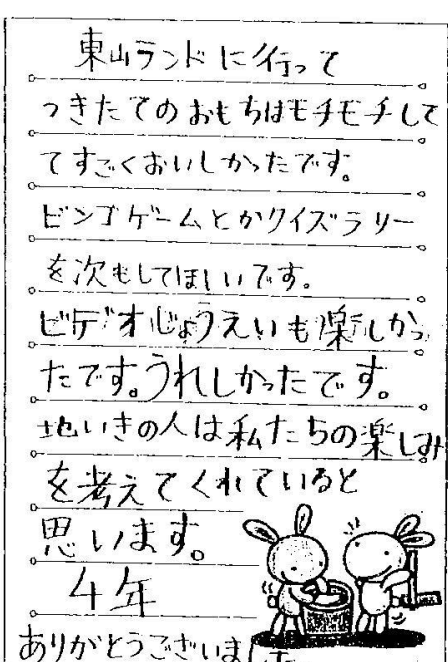 東山ランドに行って
つきたてのおもちはモチモチして
てすごくおいしかったです。
ビンゴゲームとかクイズラリー
を次もしてほしいです。
ビデオじょうえいも楽しかっ
たです。うれしかったです。
地いきの人は私たちの楽しみ
を考えてくれていると
思います。
4年
ありがとうございました